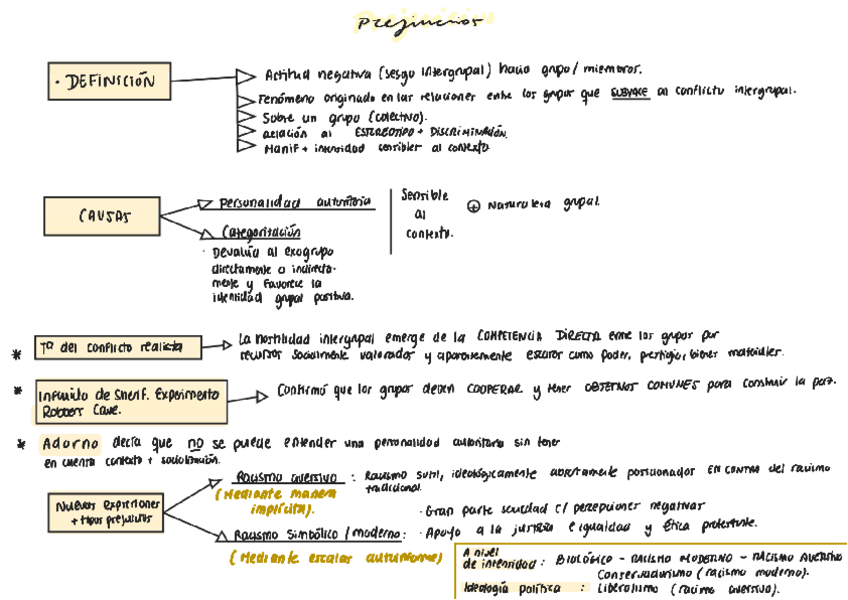 Prejuicios
· DEFINICIÓN
Actitud negativa (sesgo intergrupal) hacia grupo/ miembros.
Fenómeno originado en las relaciones entre los grupos que SUBYACE al conflicto intergrupal.
Sobre un grupo (colectivo).
Relación al ESTEREOTIPO + DISCRIMINACIÓN.
Manif + intensidad sensibles al contexto
CAUSAS
Personalidad autoritaria
Sensible
al
contexto.
⊕ Naturaleza grupal.
Categorización
· Devalúa al exogrupo
directamente o indirecta-
mente y favorece la
identidad grupal positiva.
* Tª del conflicto realista
La hostilidad intergrupal emerge de la COMPETENCIA DIRECTA entre los grupos por
recursos socialmente valorados y aparentemente escasos como poder, prestigio, bienes materiales.
* Infuido de Sherif. Experimento
Robbers Cave.
Confirmó que los grupos deben COOPERAR y tener OBJETIVOS COMUNES para construir la paz.
* Adorno decía que no se puede entender una personalidad autoritaria sin tener
en cuenta contexto + socialización.
Nuevas expresiones
+ tipos prejuicios
Racismo aversivo : Racismo sutil, ideológicamente abiertamente posicionados EN CONTRA del racismo
tradicional.
(Mediante manera
implícita).
· Gran parte sociedad c/ percepciones negativas
Racismo Simbólico / moderno : · Apoyo a la justicia e igualdad y ética protestante.
(Mediante escalas autoinforme)
A nivel
de intensidad : BIOLÓGICO - RACISMO MODERNO - RACISMO AVERSIVO
Conservadurismo (racismo moderno).
Ideología política : Liberalismo (racismo aversivo).